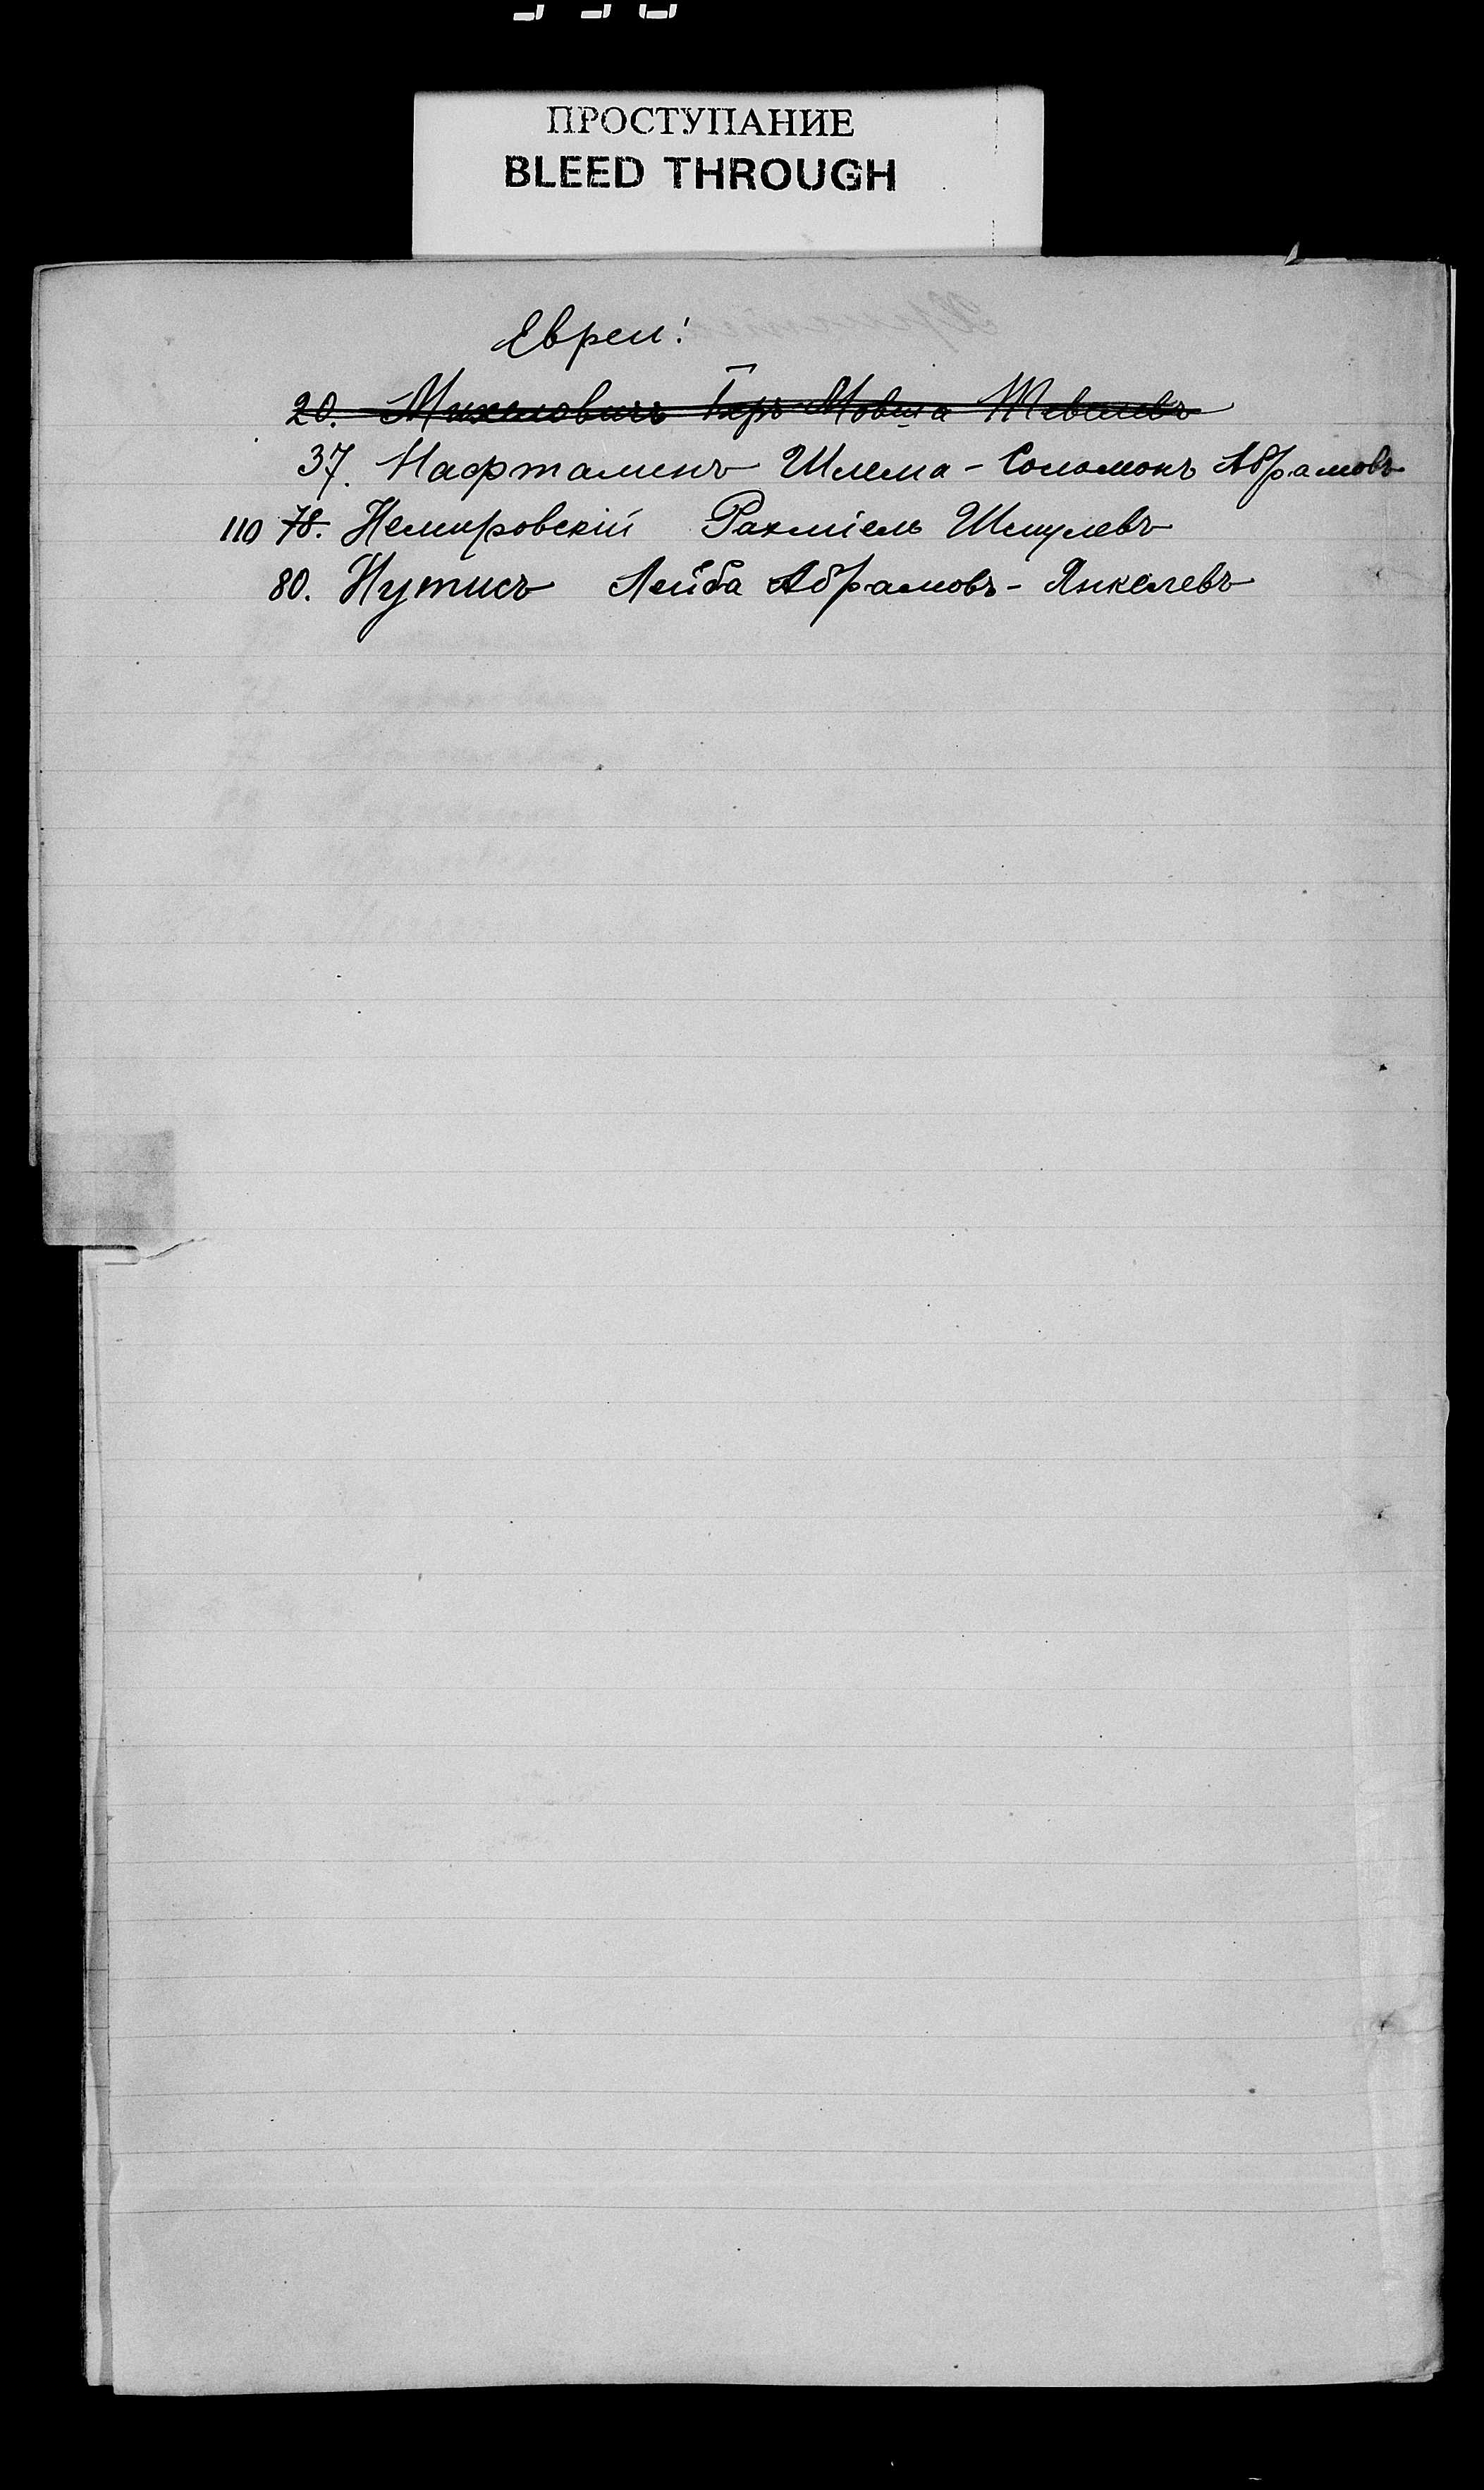 ПРОСТУПАНИЕ
BLEED THROUGH
Евреи:
20. Михеловичъ Беръ-Мовша Шевелевъ
37. Нафталинъ Шлема-Соломонъ Абрамовъ
110 78. Немировскій Рахміель Шмулевъ
80. Нутисъ Лейба Абрамовъ-Янкелевъ